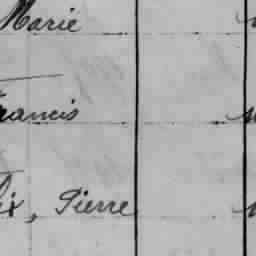 Marie
Francis
ix, Pierre